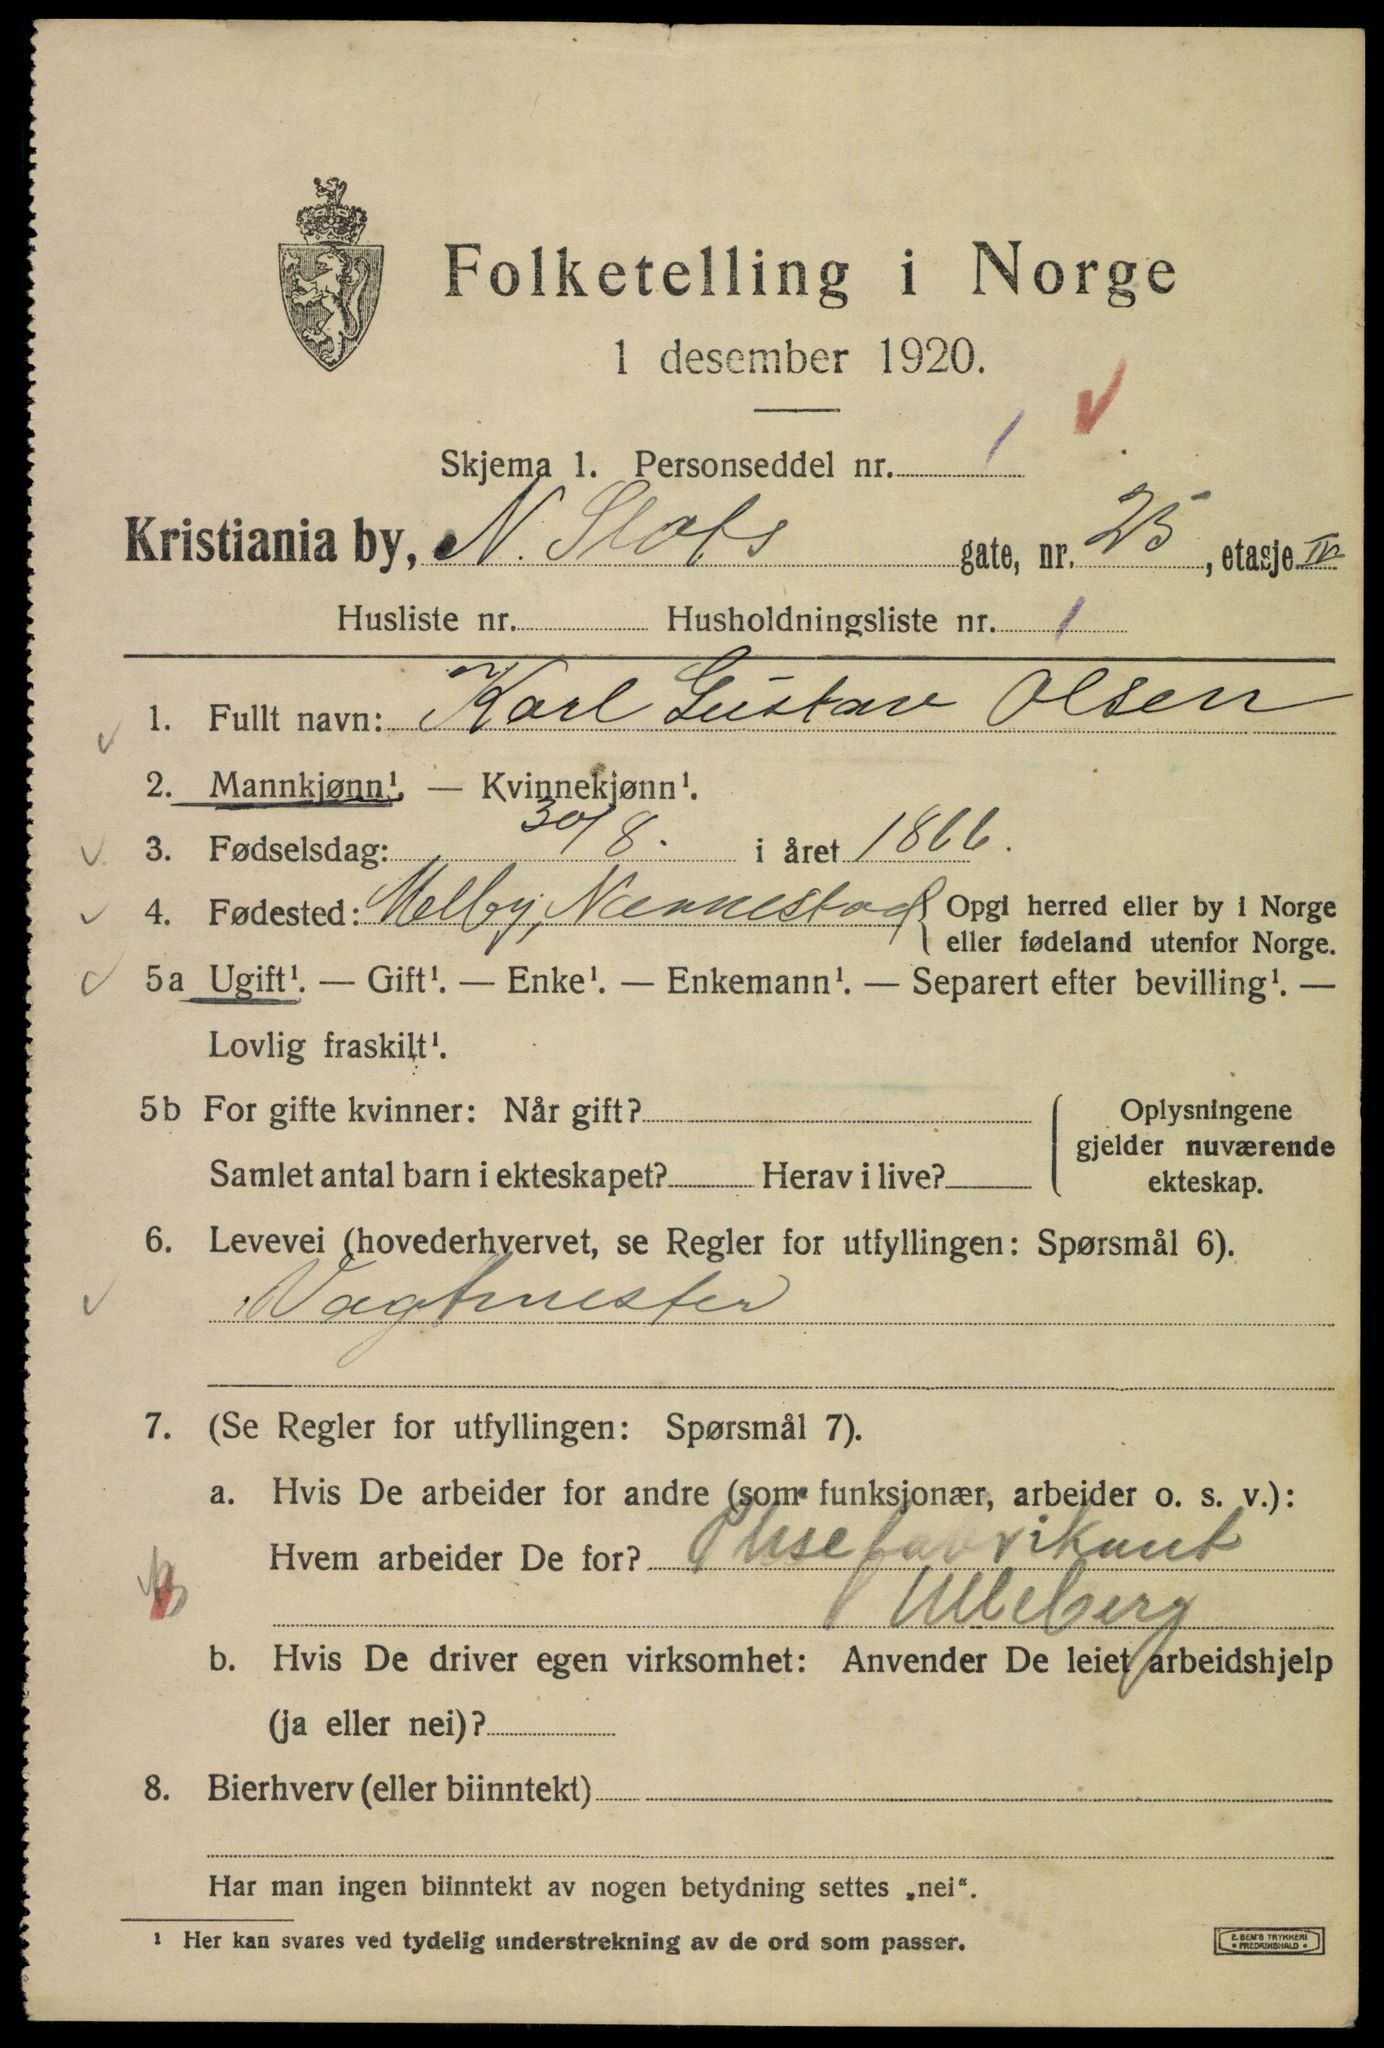 Folketelling i Norge
1 desember 1920.
Skjema 1. Personseddel nr. 1
Kristiania by, N. Slots gate, nr. 25, etasje IV
Husliste nr. Husholdningsliste nr. 1
1. Fullt navn: Karl Gustav Olsen
2. Mannkjønn¹. — Kvinnekjønn¹.
3. Fødselsdag: 30/8. i året 1866.
4. Fødested: Melby, Nannestad { Opgi herred eller by i Norge
eller fødeland utenfor Norge.
5a Ugift¹. — Gift¹. — Enke¹. — Enkemann¹. — Separert efter bevilling¹. —
Lovlig fraskilt¹.
5b For gifte kvinner: Når gift? Oplysningene
gjelder nuværende
Samlet antal barn i ekteskapet? Herav i live? ekteskap.
6. Levevei (hovederhvervet, se Regler for utfyllingen: Spørsmål 6).
Vagtmester
7. (Se Regler for utfyllingen: Spørsmål 7).
a. Hvis De arbeider for andre (som funksjonær, arbeider o. s. v.):
Hvem arbeider De for? fabrikant
Ulleberg
b. Hvis De driver egen virksomhet: Anvender De leiet arbeidshjelp
(ja eller nei)?
8. Bierhverv (eller biinntekt)
Har man ingen biinntekt av nogen betydning settes „nei“.
¹ Her kan svares ved tydelig understrekning av de ord som passer.
E. SEM'S TRYKKERI
• FREDRIKSHALD •